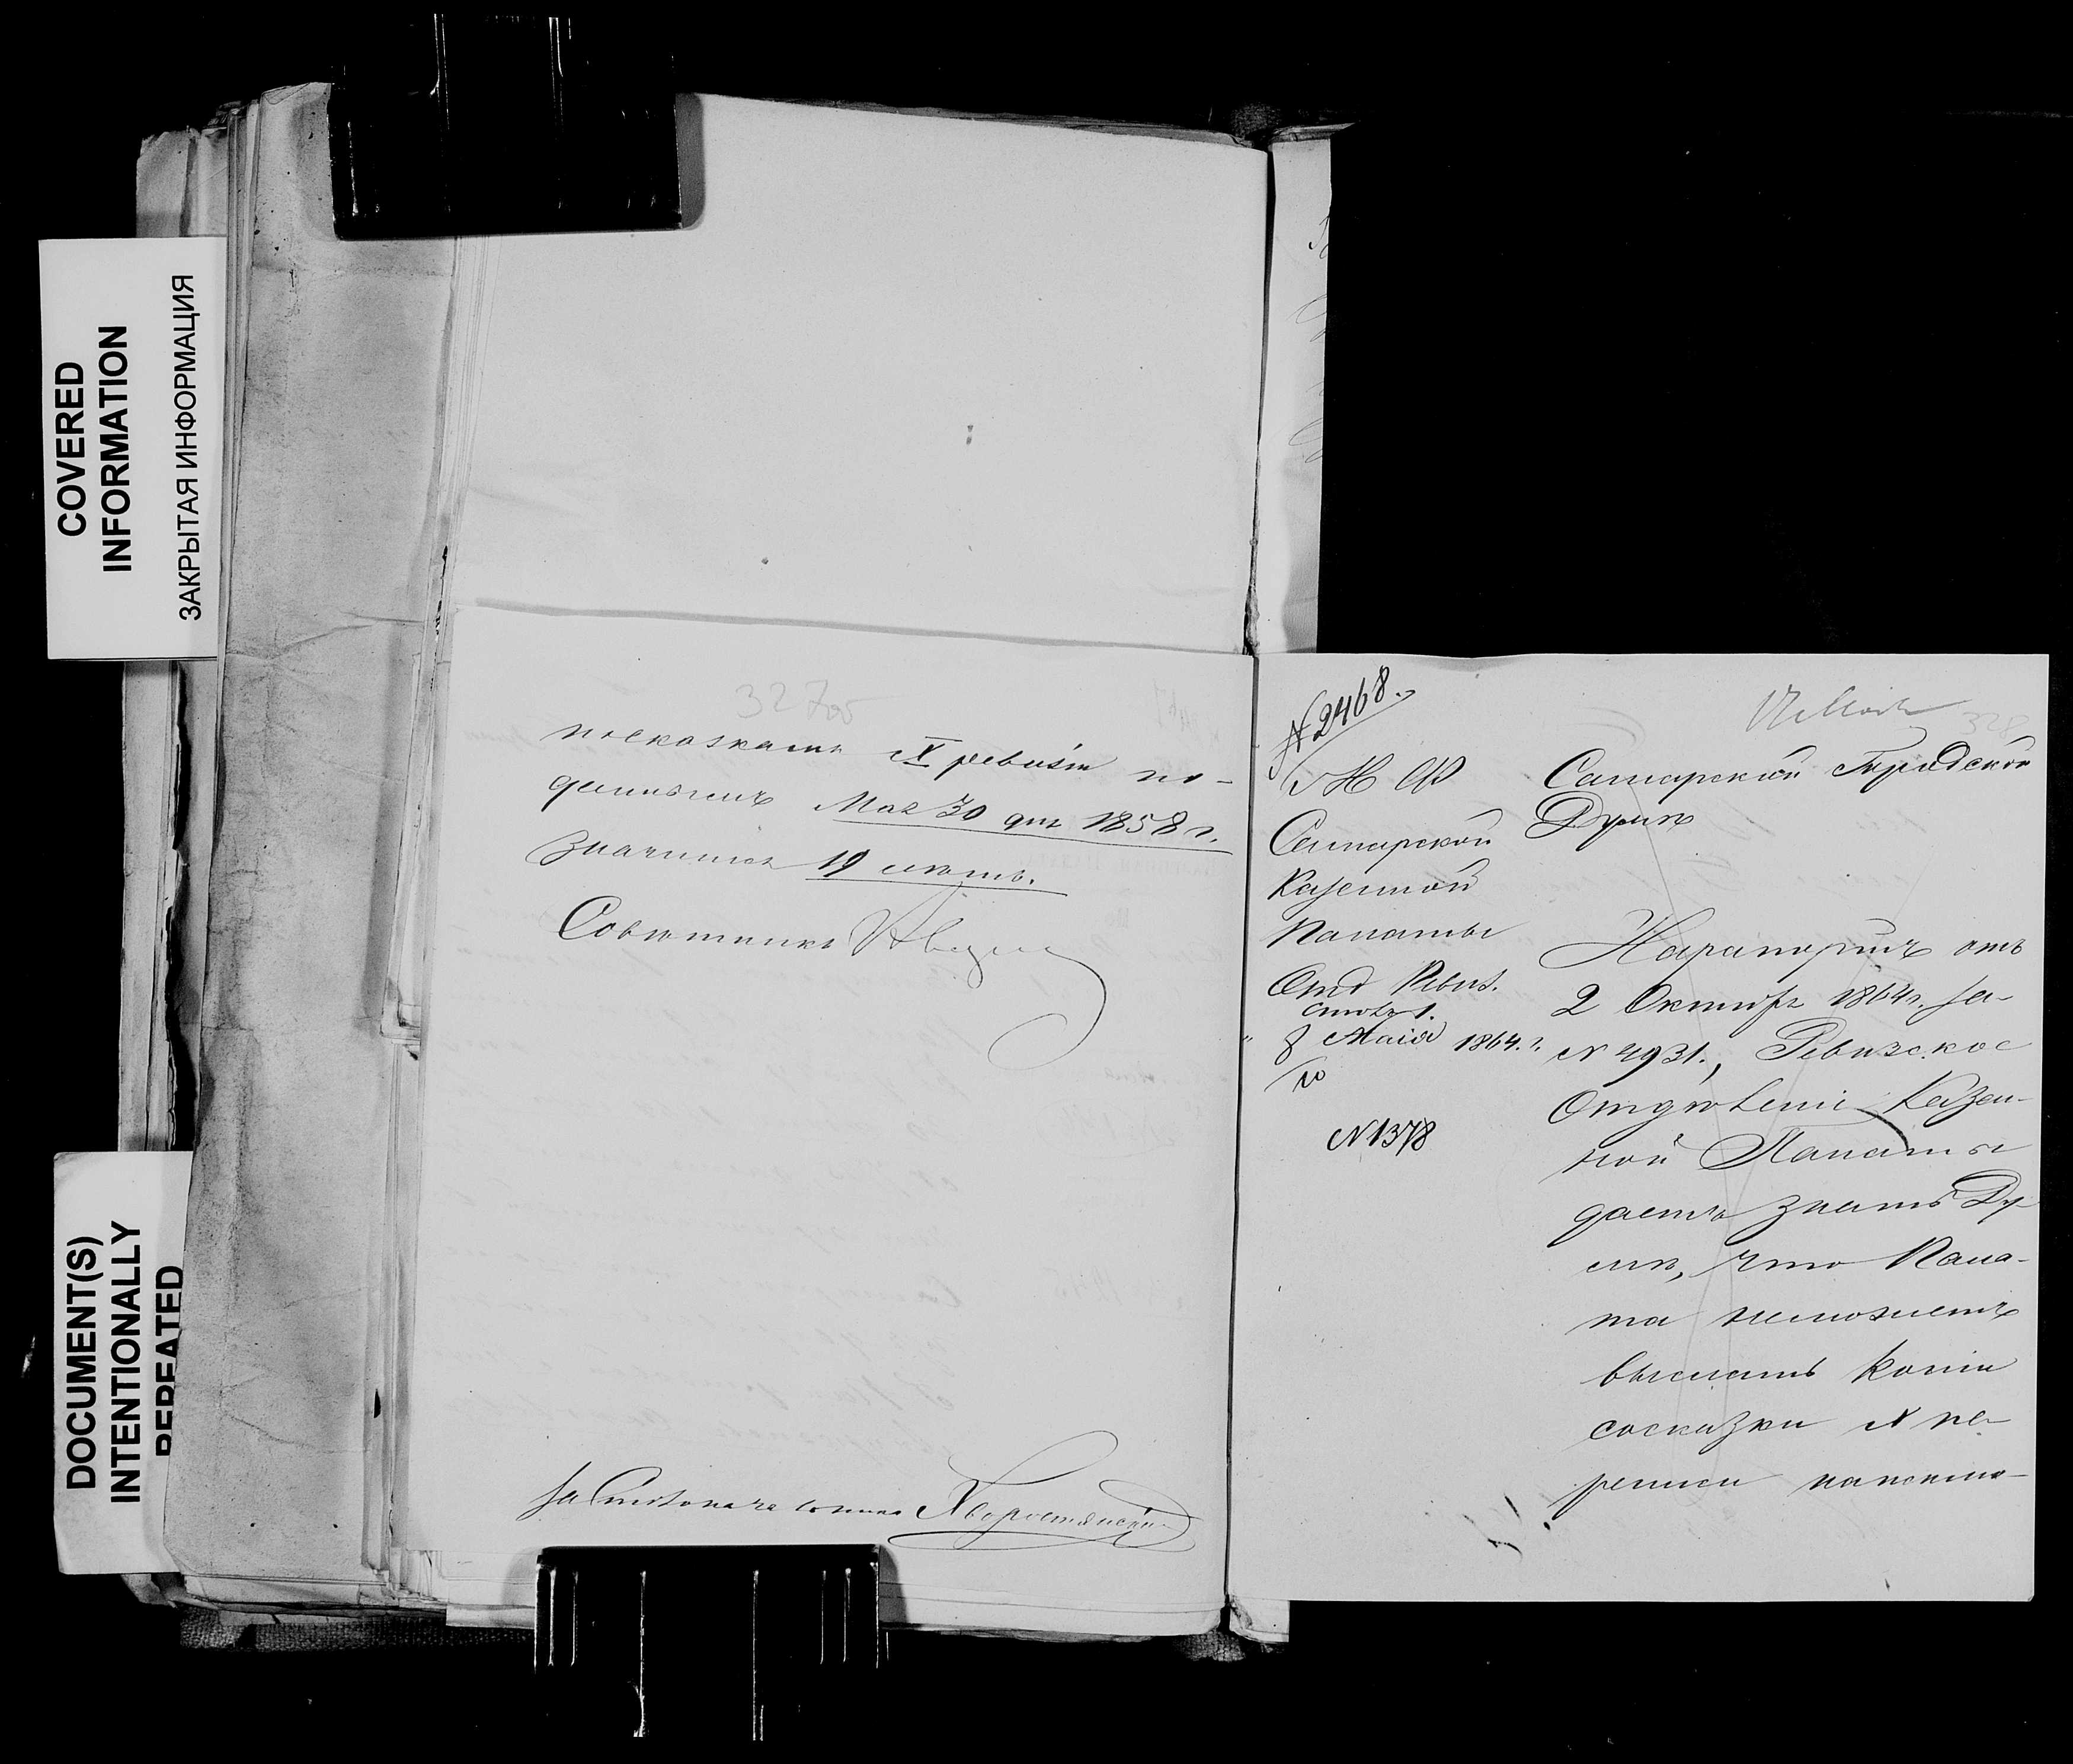 COVERED
INFORMATION
ЗАКРЫТАЯ ИНФОРМАЦИЯ
DOCUMENT(S)
INTENTIONALLY
REPEATED
327об
посказкамъ X ревизіи по-
данымъ Мая 30 дня 1858 г.
значится 19 лѣтъ.
Совѣтникъ
За Столоначальника Хворостянскій
№ 2468.
328
М. Ф.
Самарской
Казенной
Палаты
Отд Ревиз.
столъ 1.
8 Маія 1864. г.
№ 1378
Самарской Городской
Думѣ
Нарапортъ отъ
2 Октября 1864 г. за
№ 4931., Ревизское
Отдѣленіе Казен-
ной Палаты
даетъ знать Ду-
мѣ, что Пала-
та неможетъ
выслать Копіи
сосказки X пе-
реписи